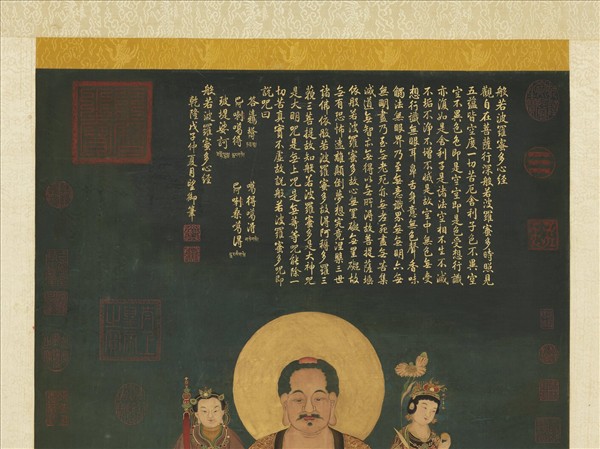 般若波羅蜜多心經
觀自在菩薩行深般若波羅蜜多時照見
五蘊皆空度一切苦厄舍利子色不異空
空不異色色即是空空即是色受想行識
亦復如是舍利子是諸法空相不生不滅
不垢不淨不增不減是故空中無色無受
想行識無眼耳鼻舌身意無色聲香味
觸法無眼界乃至無意識界無無明亦無
無明盡乃至無老死亦無老死盡無苦集
滅道無智亦無得以無所得故菩提薩埵
依般若波羅蜜多故心無罣礙無罣礙故
無有恐怖遠離顛倒夢想究竟涅槃三世
諸佛依般若波羅蜜多故得阿耨多羅三
藐三菩提故知般若波羅蜜多是大神咒
是大明咒是無上咒是無等等咒能除一
切苦真實不虛故說般若波羅蜜多咒即
說咒曰
喝得喝得
般若波羅蜜多心經
乾隆戊子仲夏月望御筆